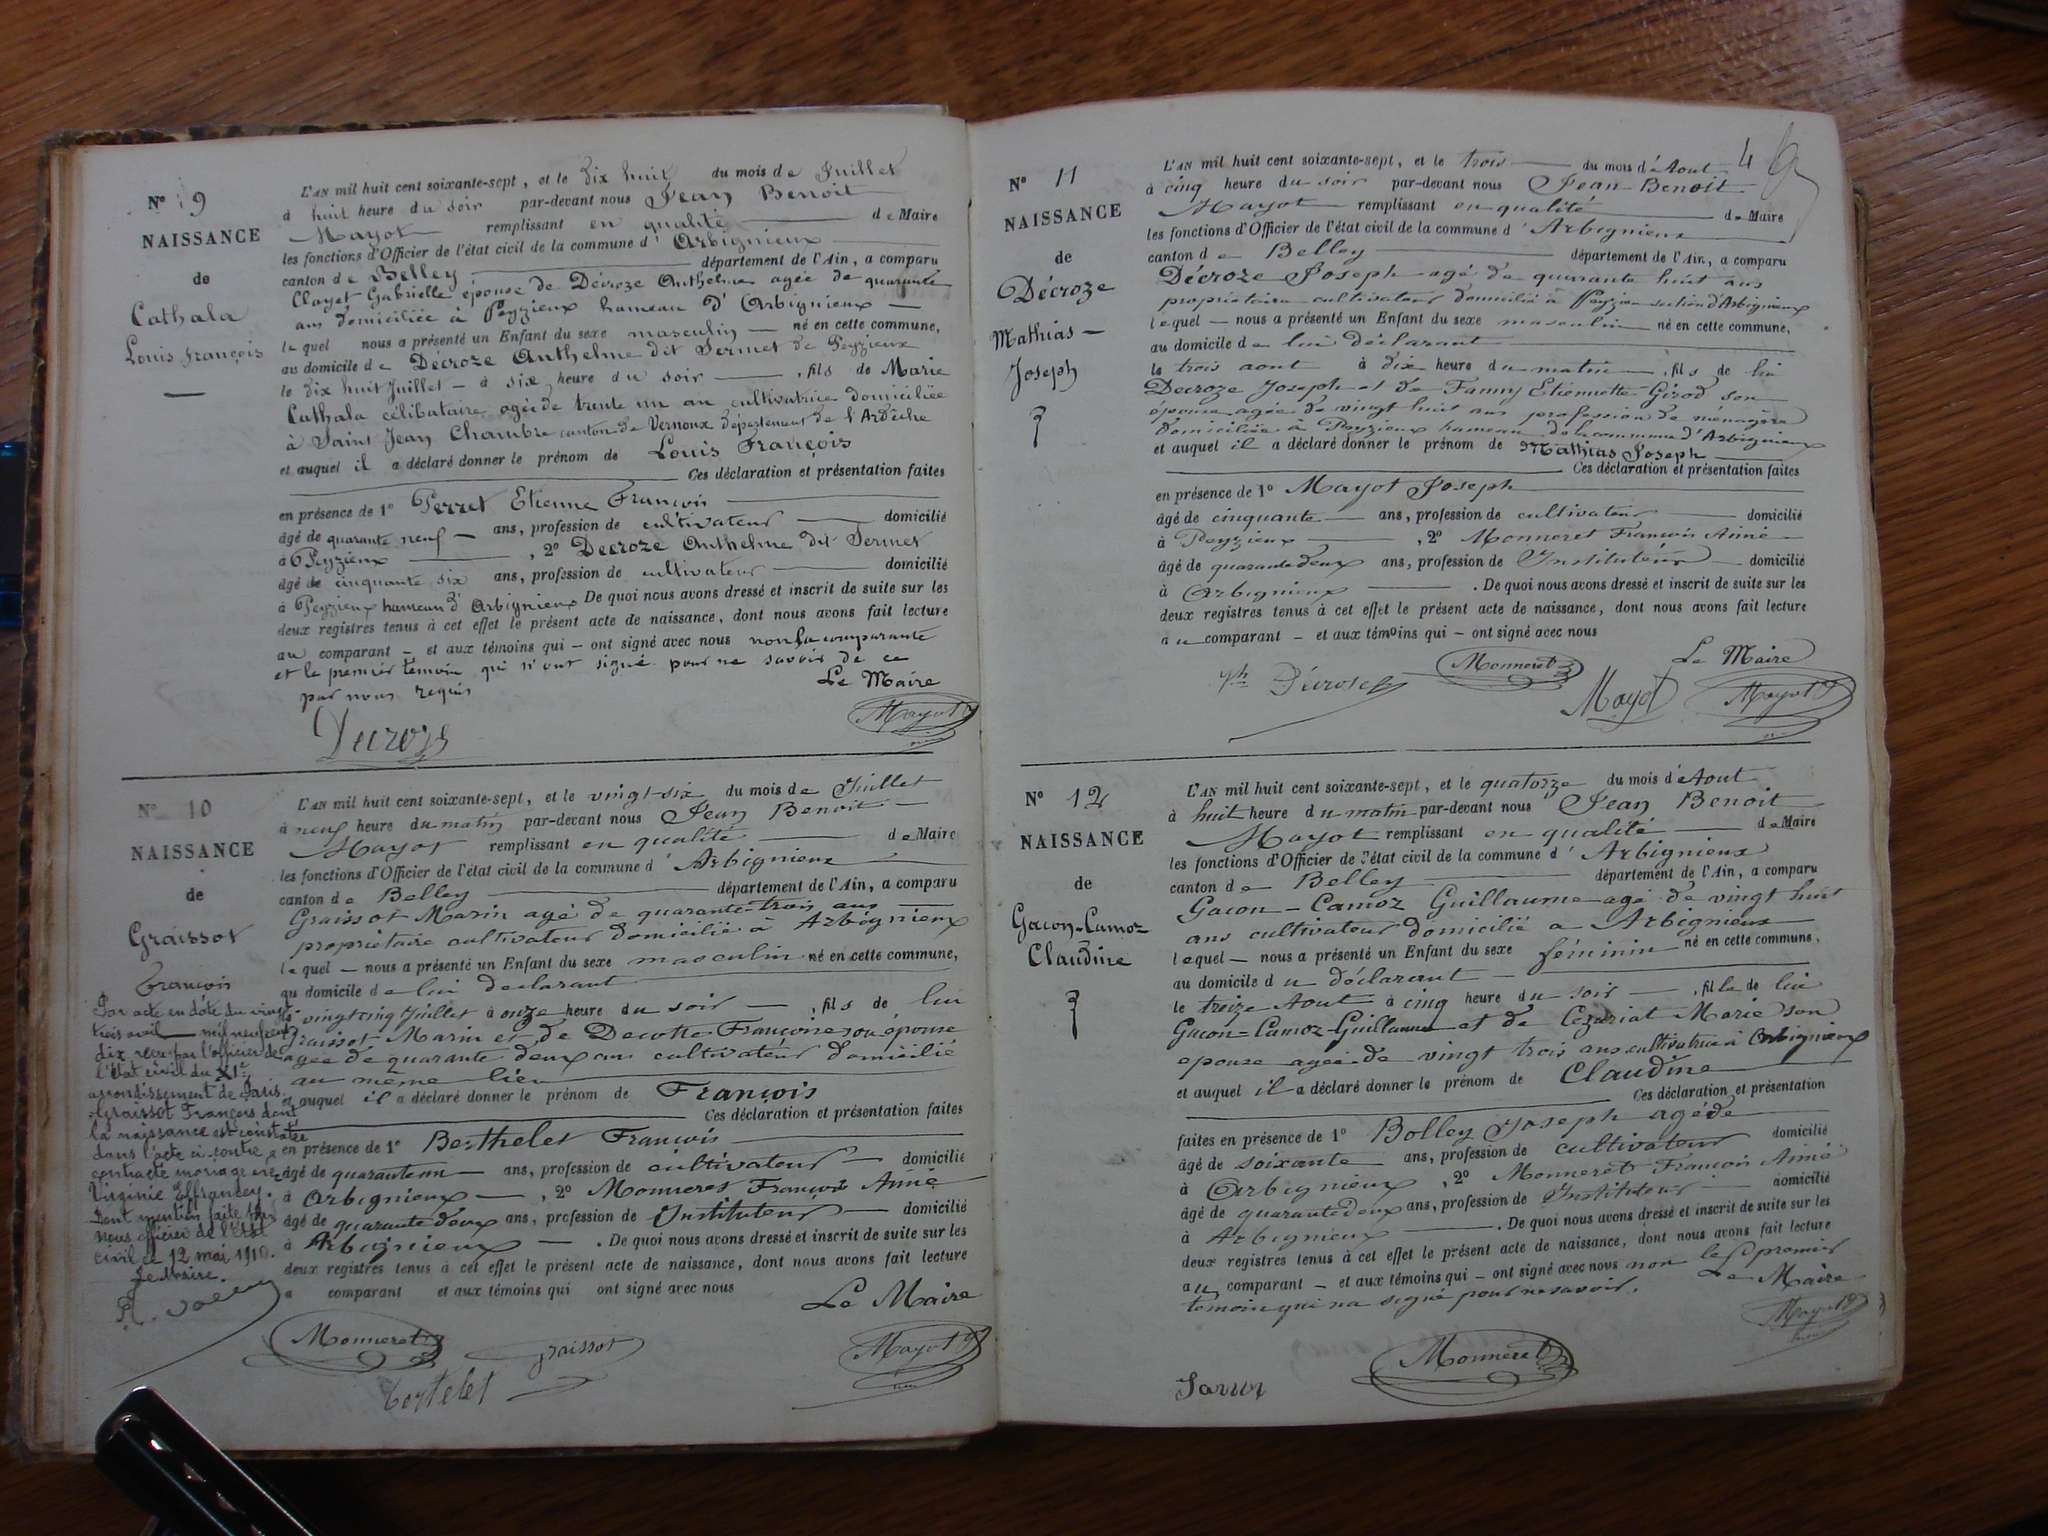 N° 9
NAISSANCE
de
Cathala
Louis François
L'AN mil huit cent soixante-sept, et le dix huit du mois de Juillet
à huit heure du soir par-devant nous Jean Benoit
Mayot remplissant en qualité de Maire
les fonctions d'Officier de l'état civil de la commune d'Arbignieux
canton de Belley département de l'Ain, a comparu
Clayet Gabrielle épouse de Décroze Anthelme agée de quarante
ans domiciliée à Peyzieux hameau d'Arbignieux
le quel nous a présenté un Enfant du sexe masculin né en cette commune,
au domicile de Décroze Anthelme dit Sermet de Peyzieux
le dix huit Juillet à six heure du soir, fils de Marie
Cathala célibataire agée de trente un an cultivatrice domiciliée
à Saint Jean Chambre canton de Vernoux département de l'Ardèche
et auquel il a déclaré donner le prénom de Louis François
Ces déclaration et présentation faites
en présence de 1° Perret Etienne François
âgé de quarante neuf ans, profession de cultivateur domicilié
à Peyzieux, 2° Decroze Anthelme dit Sermet
âgé de cinquante six ans, profession de cultivateur domicilié
à Peyzieux hameau d'Arbignieux De quoi nous avons dressé et inscrit de suite sur les
deux registres tenus à cet effet le présent acte de naissance, dont nous avons fait lecture
au comparant et aux témoins qui ont signé avec nous non la comparante
et le premier témoin qui n'ont signé pour ne savoir de ce
par nous requis
Le Maire
Decroze
Mayot
N° 10
NAISSANCE
de
Graissot
François
Par acte en date du vingt
trois avril mil neuf cent
dix reçu par l'officier de
l'état civil du XIe
arrondissement de Paris
Graissot François dont
la naissance est constatée
dans l'acte ci contre a
contracté mariage avec
Virginie Effrancey.
Dont mention faite par
nous officier de l'Etat
civil ce 12 mai 1910.
Le Maire.
L'AN mil huit cent soixante-sept, et le vingt-six du mois de Juillet
à neuf heure du matin par-devant nous Jean Benoit
Mayot remplissant en qualité de Maire
les fonctions d'Officier de l'état civil de la commune d'Arbignieux
canton de Belley département de l'Ain, a comparu
Graissot Marin agé de quarante-trois ans
propriétaire cultivateur domicilié à Arbignieux
lequel nous a présenté un Enfant du sexe masculin né en cette commune,
au domicile de lui déclarant
le vingt cinq Juillet à onze heure du soir, fils de lui
Graissot Marin et de Decotte Françoise son épouse
agée de quarante deux ans cultivateur domicilié
au même lieu
et auquel il a déclaré donner le prénom de François
Ces déclaration et présentation faites
en présence de 1° Berthelet François
âgé de quarante un ans, profession de cultivateur domicilié
à Arbignieux, 2° Monneret François Aimé
âgé de quarante deux ans, profession de Instituteur domicilié
à Arbignieux. De quoi nous avons dressé et inscrit de suite sur les
deux registres tenus à cet effet le présent acte de naissance, dont nous avons fait lecture
a comparant et aux témoins qui ont signé avec nous
Le Maire
Monneret graissot Mayot
bertelet
4
N° 11
NAISSANCE
de
Décroze
Mathias
Joseph
L'AN mil huit cent soixante-sept, et le trois du mois d'Aout
à cinq heure du soir par-devant nous Jean Benoit
Mayot remplissant en qualité de Maire
les fonctions d'Officier de l'état civil de la commune d'Arbignieux
canton de Belley département de l'Ain, a comparu
Décroze Joseph agé de quarante huit ans
propriétaire cultivateur domicilié à Peyzieu section d'Arbignieux
lequel nous a présenté un Enfant du sexe masculin né en cette commune,
au domicile de lui déclarant
le trois aout à dix heure du matin, fils de lui
Decroze Joseph et de Fanny Etiennette Girod son
épouse agée de vingt huit ans profession de ménagère
domiciliée à Peyzieux hameau de la commune d'Arbignieux
et auquel il a déclaré donner le prénom de Mathias Joseph
Ces déclaration et présentation faites
en présence de 1° Mayot Joseph
âgé de cinquante ans, profession de cultivateur domicilié
à Peyzieux, 2° Monneret François Aimé
âgé de quarante deux ans, profession de Instituteur domicilié
à Arbignieux. De quoi nous avons dressé et inscrit de suite sur les
deux registres tenus à cet effet le présent acte de naissance, dont nous avons fait lecture
au comparant et aux témoins qui ont signé avec nous
Le Maire
Jh Décrose Monneret Mayot Mayot
N° 12
NAISSANCE
de
Gacon-Camoz
Claudine
L'AN mil huit cent soixante-sept, et le quatorze du mois d'Aout
à huit heure du matin par-devant nous Jean Benoit
Mayot remplissant en qualité de Maire
les fonctions d'Officier de l'état civil de la commune d'Arbignieux
canton de Belley département de l'Ain, a comparu
Gacon-Camoz Guillaume agé de vingt huit
ans cultivateur domicilié à Arbignieux
lequel nous a présenté un Enfant du sexe féminin né en cette commune,
au domicile du déclarant
le treize Aout à cinq heure du soir, fille de lui
Gacon-Camoz Guillaume et de Cezariat Marie son
épouse agée de vingt trois ans cultivatrice à Arbignieux
et auquel il a déclaré donner le prénom de Claudine
Ces déclaration et présentation
faites en présence de 1° Bolley Joseph agé de
âgé de soixante ans, profession de cultivateur domicilié
à Arbignieux, 2° Monneret François Aimé
âgé de quarante deux ans, profession de Instituteur domicilié
à Arbignieux. De quoi nous avons dressé et inscrit de suite sur les
deux registres tenus à cet effet le présent acte de naissance, dont nous avons fait lecture
au comparant et aux témoins qui ont signé avec nous non le premier
temoin qui na signé pour ne savoir.
Le Maire
Monneret Mayot